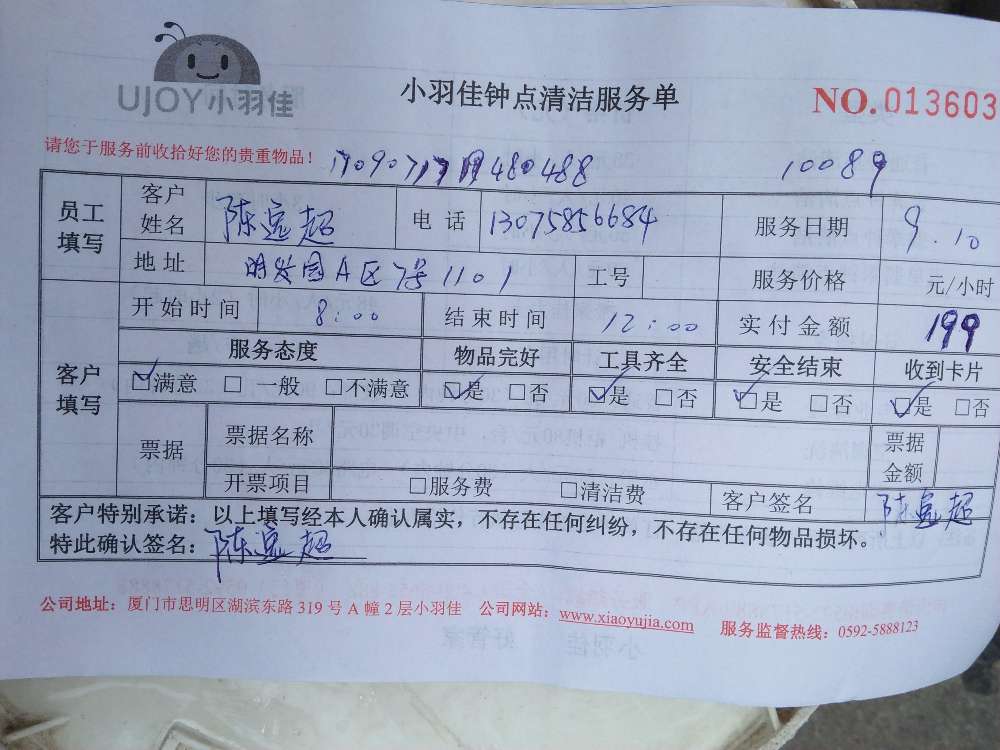 UJOY小羽佳
小羽佳钟点清洁服务单
NO.013603
请您于服务前收拾好您的贵重物品！
10089
员工填写 客户姓名 陈宜超 电话 13075856684 服务日期 9.10
地址 明发园A区7号1101 工号 服务价格 元/小时
客户填写 开始时间 8:00 结束时间 12:00 实付金额 199
服务态度 物品完好 工具齐全 安全结束 收到卡片
☑满意 □一般 □不满意 ☑是 □否 ☑是 □否 ☑是 □否 ☑是 □否
票据 票据名称 票据金额
开票项目 □服务费 □清洁费 客户签名 陈宜超
客户特别承诺：以上填写经本人确认属实，不存在任何纠纷，不存在任何物品损坏。
特此确认签名：陈宜超
公司地址：厦门市思明区湖滨东路 319 号 A 幢 2 层小羽佳 公司网站：www.xiaoyujia.com 服务监督热线：0592-5888123